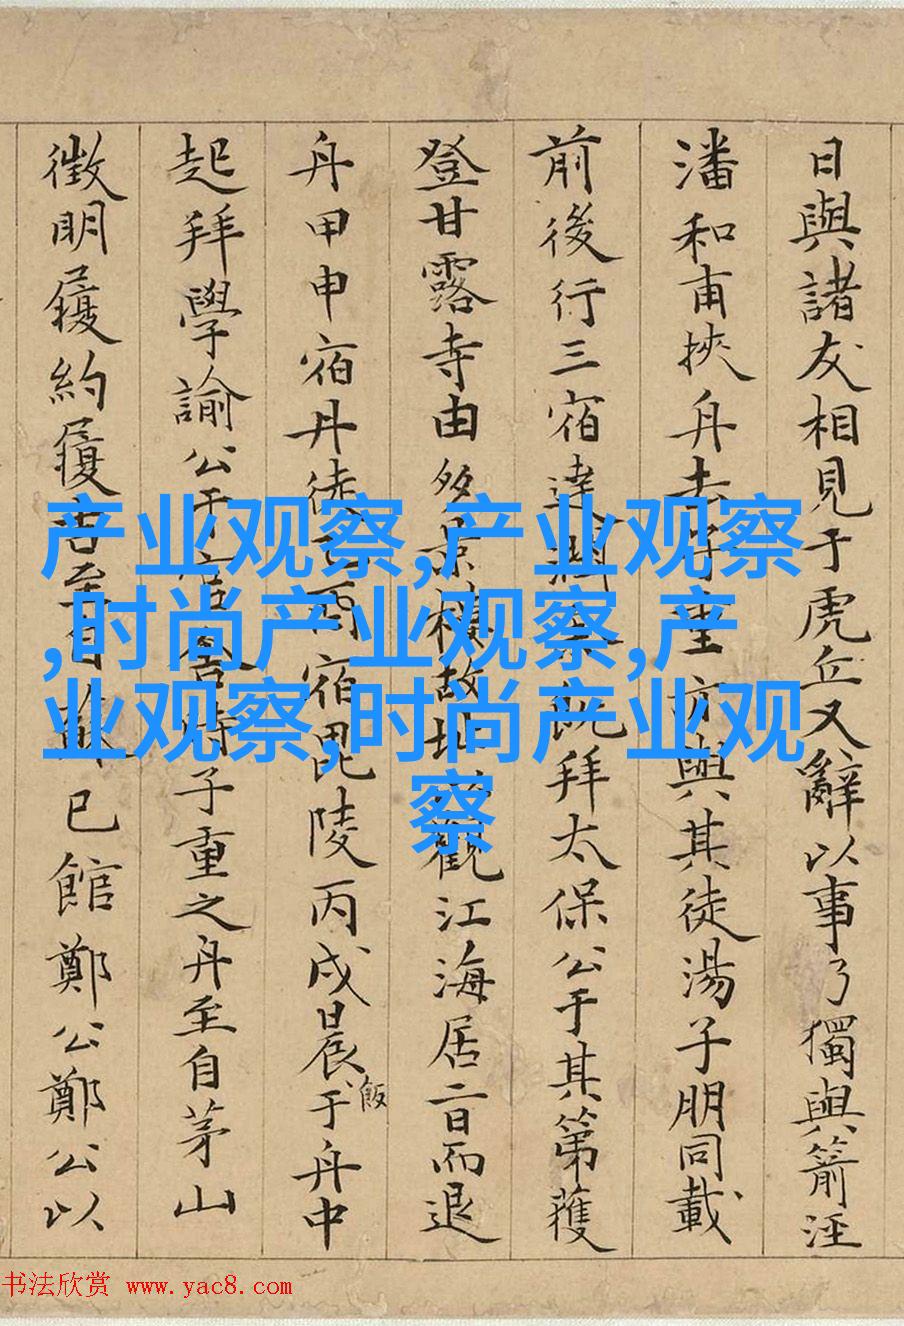 日與諸友相見于虎丘又辭以事乃獨與箭涇
潘和甫挾舟去子重方與其徒湯子朋同載
前後行三宿達潤 既拜太保公于其第獲
登甘露寺由多景樓故址 觀江海居二日而退
舟甲申宿丹徒 丙宿毘陵丙戌晨飯于舟中
起拜學諭公于官舍時子重之舟至自茅山
徵明履約履吉至自蘇已館鄭公鄭公以
产业观察,产业观察
,时尚产业观察,产
业观察,时尚产业观
察
书法欣赏 www.yac8.com